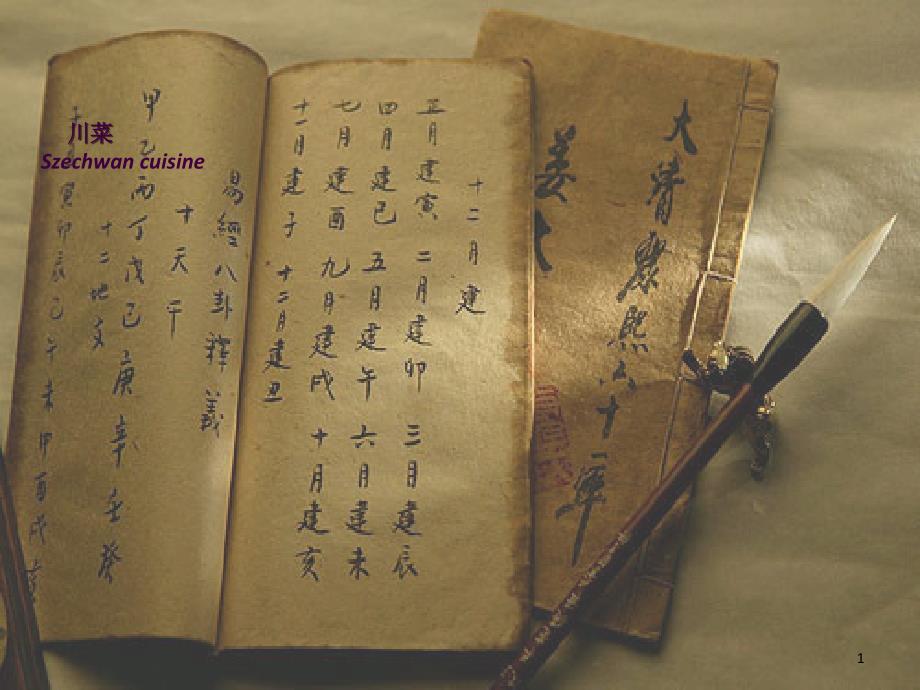 川菜
Szechwan cuisine
十二月建
正月建寅 二月建卯 三月建辰
四月建巳 五月建午 六月建未
七月建酉 九月建戌 十月建亥
十一月建子 十二月建丑
易經八卦釋義
十天干
甲乙丙丁戊己庚辛壬癸
十二地支
子寅卯辰巳午未申酉戌亥
大清康熙六十一年
姜
1